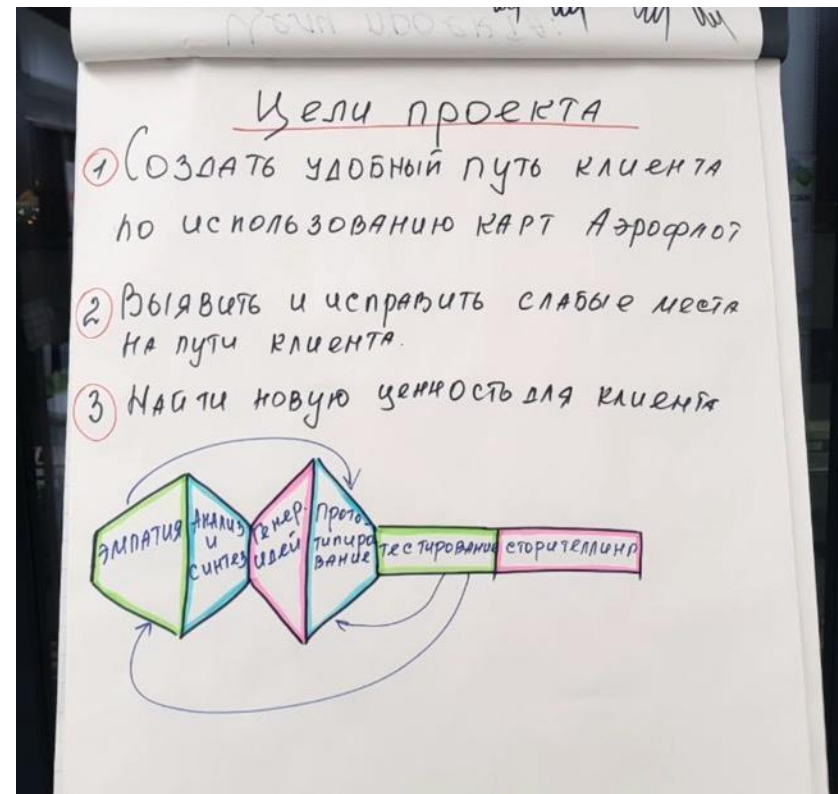 Цели проекта
1 Создать удобный путь клиента
по использованию карт Аэрофлот
2 Выявить и исправить слабые места
на пути клиента.
3 Найти новую ценность для клиента
Эмпатия
Анализ
и
синтез
Генер.
идей
Прото-
типиро
вание
тестирование
сторителлинг